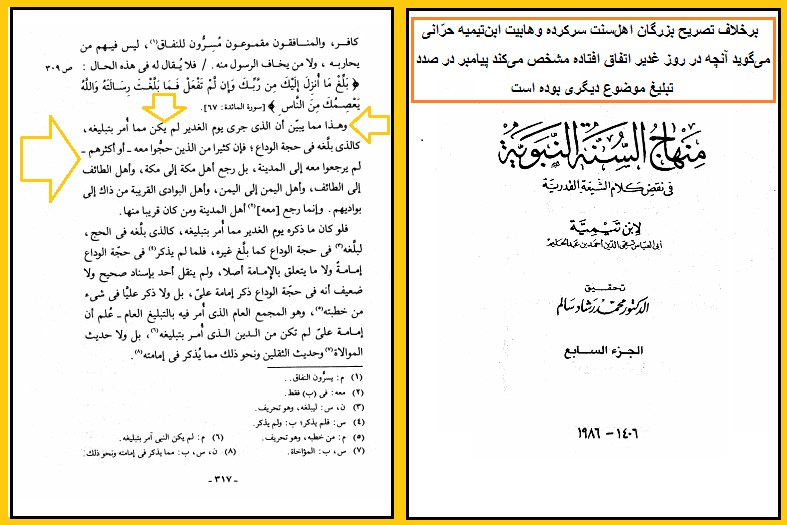 برخلاف تصریح بزرگان اهل‌سنت سرکرده وهابیت ابن‌تیمیه حرّانی
می‌گوید آنچه در روز غدیر اتفاق افتاده مشخص می‌کند پیامبر در صدد
تبلیغ موضوع دیگری بوده است
منهاج السنة النبوية
في نقض كلام الشيعة القدرية
لابن تيمية
أبي العباس تقي الدين أحمد بن عبد الحليم
تحقيق
الدكتور محمد رشاد سالم
الجزء السابع
١٤٠٦ - ١٩٨٦
كافر، والمنافقون مقموعون مُسِرُّون للنفاق(١)، ليس فيهم من
يحاربه، ولا من يخاف الرسول منه. / فلا يُقال له فى هذه الحال : ص ٣٠٩
﴿ بَلِّغْ مَا أُنزِلَ إِلَيْكَ مِن رَّبِّكَ وَإِن لَّمْ تَفْعَلْ فَمَا بَلَّغْتَ رِسَالَتَهُ وَاللَّهُ
يَعْصِمُكَ مِنَ النَّاسِ ﴾ [سورة المائدة: ٦٧].
وهذا مما يبيّن أن الذى جرى يوم الغدير لم يكن مما أُمر بتبليغه،
كالذى بلّغه فى حجة الوداع؛ فإن كثيرا من الذين حجُّوا معه ـ أو أكثرهم ـ
لم يرجعوا معه إلى المدينة، بل رجع أهل مكة إلى مكة، وأهل الطائف
إلى الطائف، وأهل اليمن إلى اليمن، وأهل البوادى القريبة من ذاك إلى
بواديهم. وإنما رجع [معه](٢) أهل المدينة ومن كان قريبا منها.
فلو كان ما ذكره يوم الغدير مما أُمر بتبليغه، كالذى بلّغه فى الحج،
لبلّغه(٣) فى حجة الوداع كما بلَّغ غيره، فلما لم يذكر(٤) فى حجّة الوداع
إمامةً ولا ما يتعلق بالإمامة أصلا، ولم ينقل أحد بإسناد صحيح ولا
ضعيف أنه فى حجّة الوداع ذكر إمامة علىّ، بل ولا ذكر عليًّا فى شىء
من خطبته(٥)، وهو المجمع العام الذى أُمر فيه بالتبليغ العام ـ عُلم أن
إمامة علىّ لم تكن من الدين الذى أُمر بتبليغه(٦)، بل ولا حديث
الموالاة(٧) وحديث الثقلين ونحو ذلك مما يُذكر فى إمامته(٨).
(١) م: يسرُّون النفاق..
(٢) معه: فى (ب) فقط.
(٣) ن، س: ليبلغه، وهو تحريف.
(٤) س: فلم يذكر؛ ب: ولم يذكر.
(٥) م: من خطبه، وهو تحريف. (٦) م: لم يكن النبى أمر بتبليغه.
(٧) س، ب: المؤاخاة. (٨) ن، س، ب: مما يذكر فى إمامته ونحو ذلك.
ـ ٣١٧ ـ